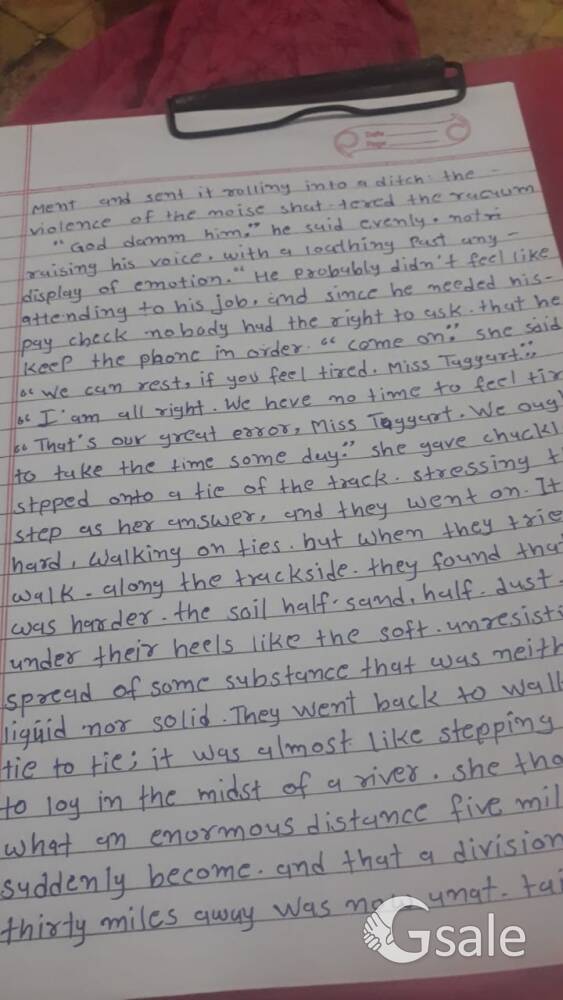 Date
Page
ment and sent it rolling into a ditch. the -
violence of the noise shat. tered the vacuum
"God damm him." he said evenly. not
raising his voice. with a loathing Past any -
display of emotion." He probably didn't feel like
attending to his job, and since he needed his-
pay check nobady had the right to ask. that he
keep the phone in order. "come on." she said
"We can rest, if you feel tired. Miss Taggart."
"I'am all right. We heve no time to feel tir
"That's our great error, Miss Taggart. We oug
to take the time some day." she gave chuckl
stepped onto a tie of the track. stressing t
step as her answer, and they went on. It
hard, walking on ties. but when they trie
walk. along the trackside. they found tha
was harder. the soil half. sand, half. dust.
under their heels like the soft. unresisti
spread of some substance that was neith
liquid nor solid. They went back to wal
tie to tie; it was almost like stepping
to log in the midst of a river. she tho
what an enormous distance five mil
suddenly become. and that a division
thirty miles away was now unat. tai
Gsale